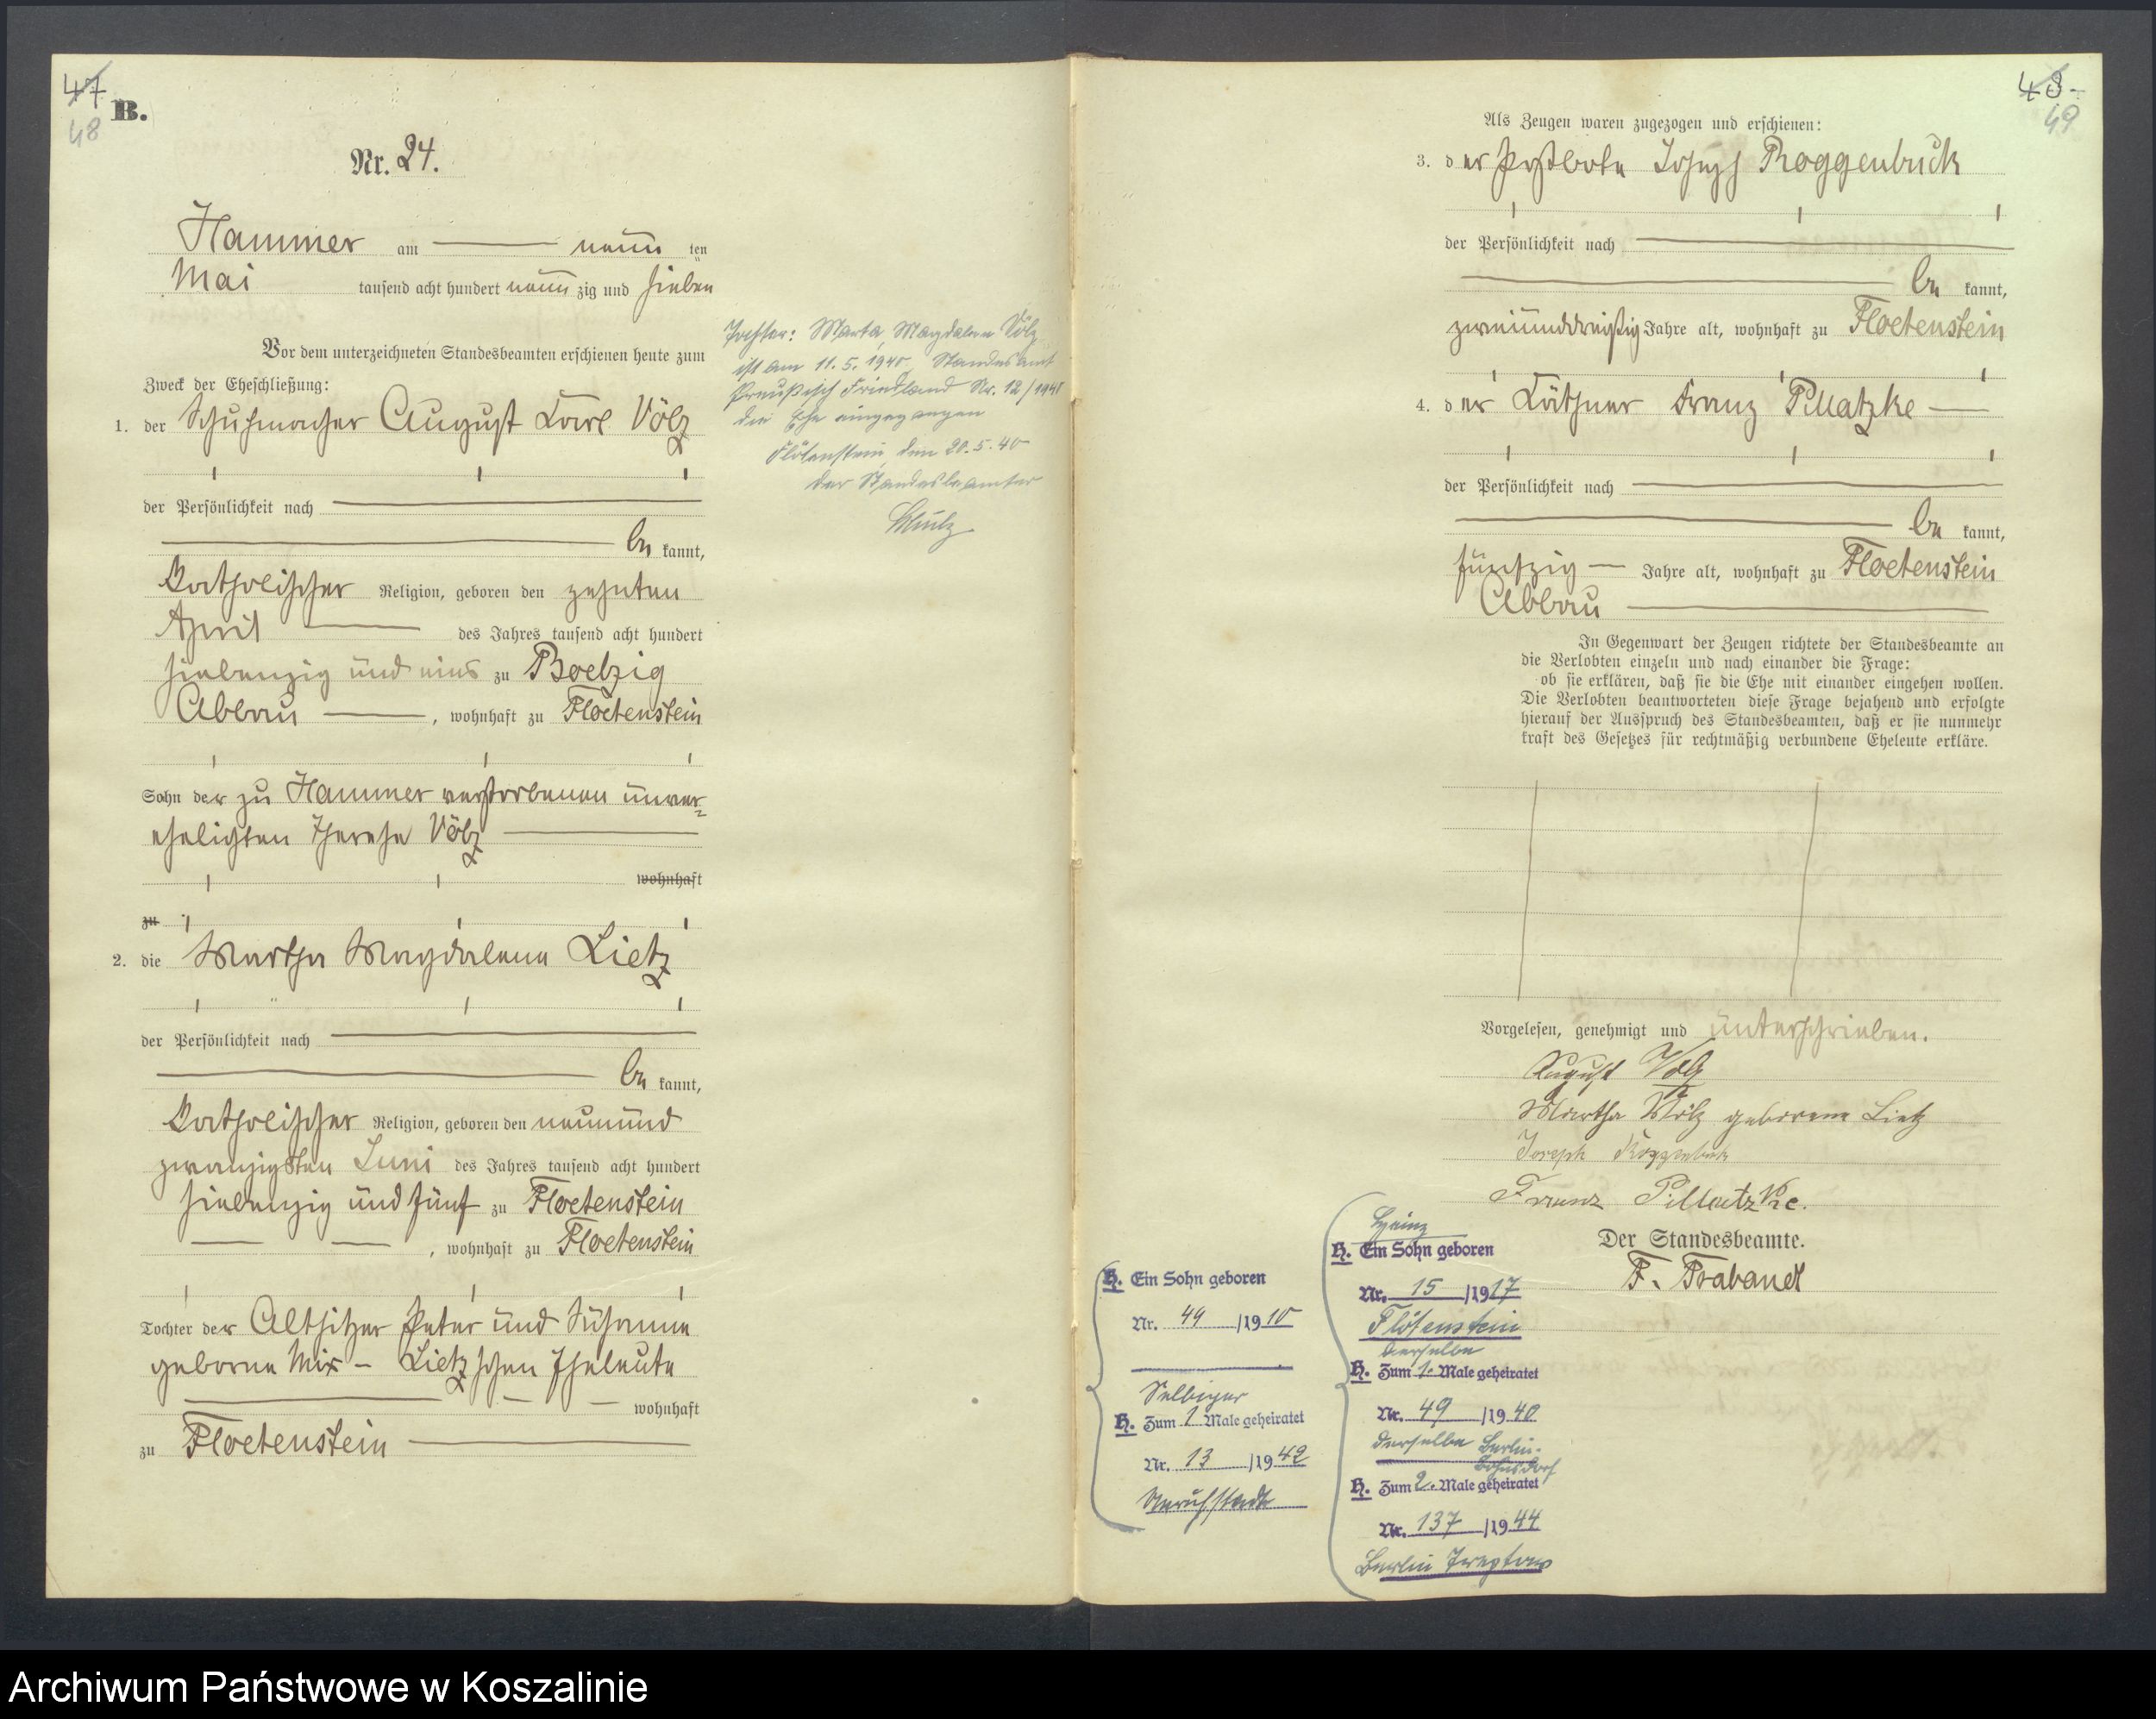 47
48
B.
Nr. 24.
Hammer am neun ten
Mai tausend acht hundert neun zig und sieben
Vor dem unterzeichneten Standesbeamten erschienen heute zum
Zweck der Eheschließung:
1. der Schuhmacher August Carl Völz
der Persönlichkeit nach
be kannt,
katholischer Religion, geboren den zehnten
April des Jahres tausend acht hundert
siebenzig und eins zu Boelzig
Abbau , wohnhaft zu Floetenstein
Sohn der zu Hammer verstorbenen unver-
ehelichten Therese Völz
wohnhaft
zu
2. die Martha Magdalena Lietz
der Persönlichkeit nach
be kannt,
katholischer Religion, geboren den neunund
zwanzigsten Juni des Jahres tausend acht hundert
siebenzig und fünf zu Floetenstein
, wohnhaft zu Floetenstein
Tochter der Altsitzer Peter und Susanna
geborne Mix - Lietz'schen Eheleute
wohnhaft
zu Floetenstein
Tochter: Marta, Magdalena Völz
ist am 11.5.1940, Standesamt
Preußisch Friedland Nr. 12/1940
die Ehe eingegangen
Flötenstein, den 20.5.40
Der Standesbeamte
48
49
Als Zeugen waren zugezogen und erschienen:
3. d er Postbote Joseph Roggenbuck
der Persönlichkeit nach
be kannt,
zweiunddreißig Jahre alt, wohnhaft zu Floetenstein
4. d er Käthner Franz Pillatzke
der Persönlichkeit nach
be kannt,
fünfzig Jahre alt, wohnhaft zu Floetenstein
Abbau
In Gegenwart der Zeugen richtete der Standesbeamte an
die Verlobten einzeln und nach einander die Frage:
ob sie erklären, daß sie die Ehe mit einander eingehen wollen.
Die Verlobten beantworteten diese Frage bejahend und erfolgte
hierauf der Ausspruch des Standesbeamten, daß er sie nunmehr
kraft des Gesetzes für rechtmäßig verbundene Eheleute erkläre.
Vorgelesen, genehmigt und unterschrieben.
August Völz
Martha Völz geborene Lietz
Joseph Roggenbuck
Franz Pillatzke.
Der Standesbeamte.
F. Brabandt
H. Ein Sohn geboren
Nr. 49 /1910
Selbiger
H. Zum 1 Male geheiratet
Nr. 13 /1942
H. Ein Sohn geboren
Nr. 15 /1917
Flötenstein
derselbe
H. Zum 1. Male geheiratet
Nr. 49 /1940
derselbe Berlin-
Bohnsdorf
H. Zum 2. Male geheiratet
Nr. 137 /1944
Berlin Treptow
Archiwum Państwowe w Koszalinie